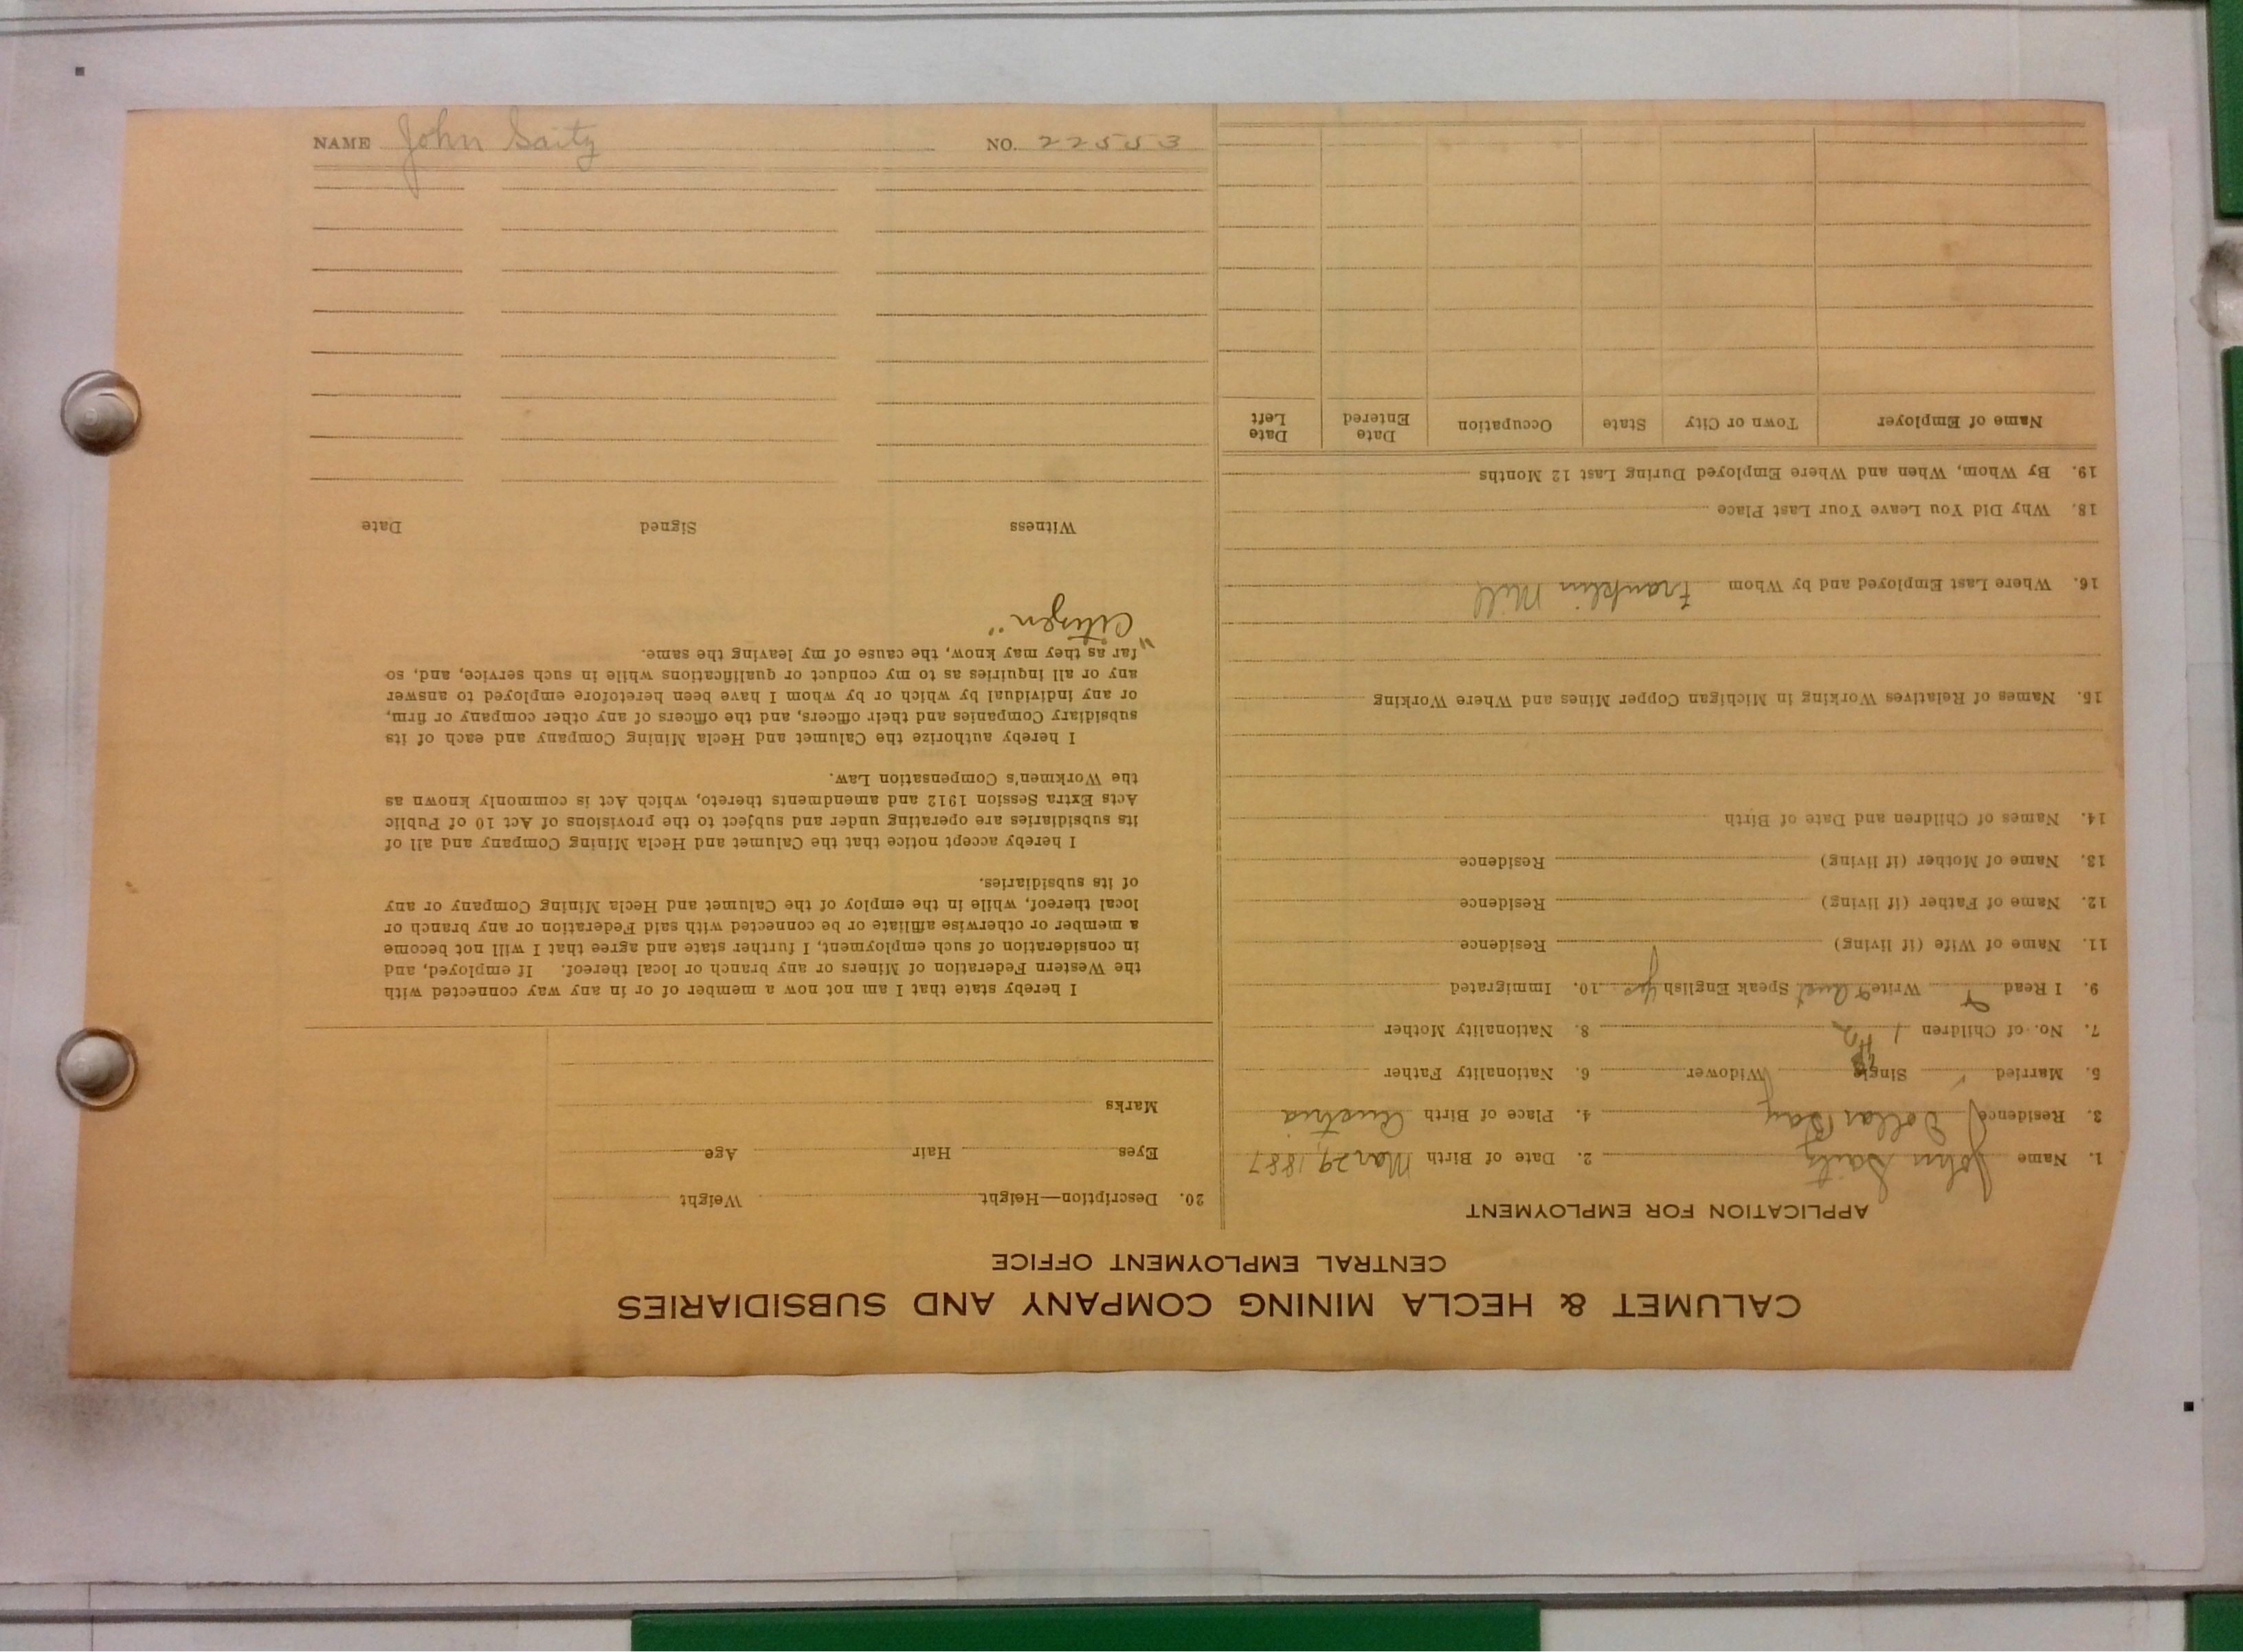 CALUMET & HECLA MINING COMPANY AND SUBSIDIARIES
CENTRAL EMPLOYMENT OFFICE
APPLICATION FOR EMPLOYMENT
1. Name John Saitz 2. Date of Birth Mar 29, 1887
3. Residence Dollar Bay 4. Place of Birth Austria
5. Married Single Widower 6. Nationality Father
7. No. of Children 1 8. Nationality Mother
9. I Read Write Aust Speak English yes 10. Immigrated
11. Name of Wife (if living) Residence
12. Name of Father (if living) Residence
13. Name of Mother (if living) Residence
14. Names of Children and Date of Birth
15. Names of Relatives Working in Michigan Copper Mines and Where Working
16. Where Last Employed and by Whom Franklin Mill
18. Why Did You Leave Your Last Place
19. By Whom, When and Where Employed During Last 12 Months
Name of Employer Town or City State Occupation Date Entered Date Left
20. Description—Height Weight
Eyes Hair Age
Marks
I hereby state that I am not now a member of or in any way connected with
the Western Federation of Miners or any branch or local thereof. If employed, and
in consideration of such employment, I further state and agree that I will not become
a member or otherwise affiliate or be connected with said Federation or any branch or
local thereof, while in the employ of the Calumet and Hecla Mining Company or any
of its subsidiaries.
I hereby accept notice that the Calumet and Hecla Mining Company and all of
its subsidiaries are operating under and subject to the provisions of Act 10 of Public
Acts Extra Session 1912 and amendments thereto, which Act is commonly known as
the Workmen's Compensation Law.
I hereby authorize the Calumet and Hecla Mining Company and each of its
subsidiary Companies and their officers, and the officers of any other company or firm,
or any individual by which or by whom I have been heretofore employed to answer
any or all inquiries as to my conduct or qualifications while in such service, and, so
far as they may know, the cause of my leaving the same.
"Citizen"
Witness Signed Date
NAME John Saitz NO. 22553